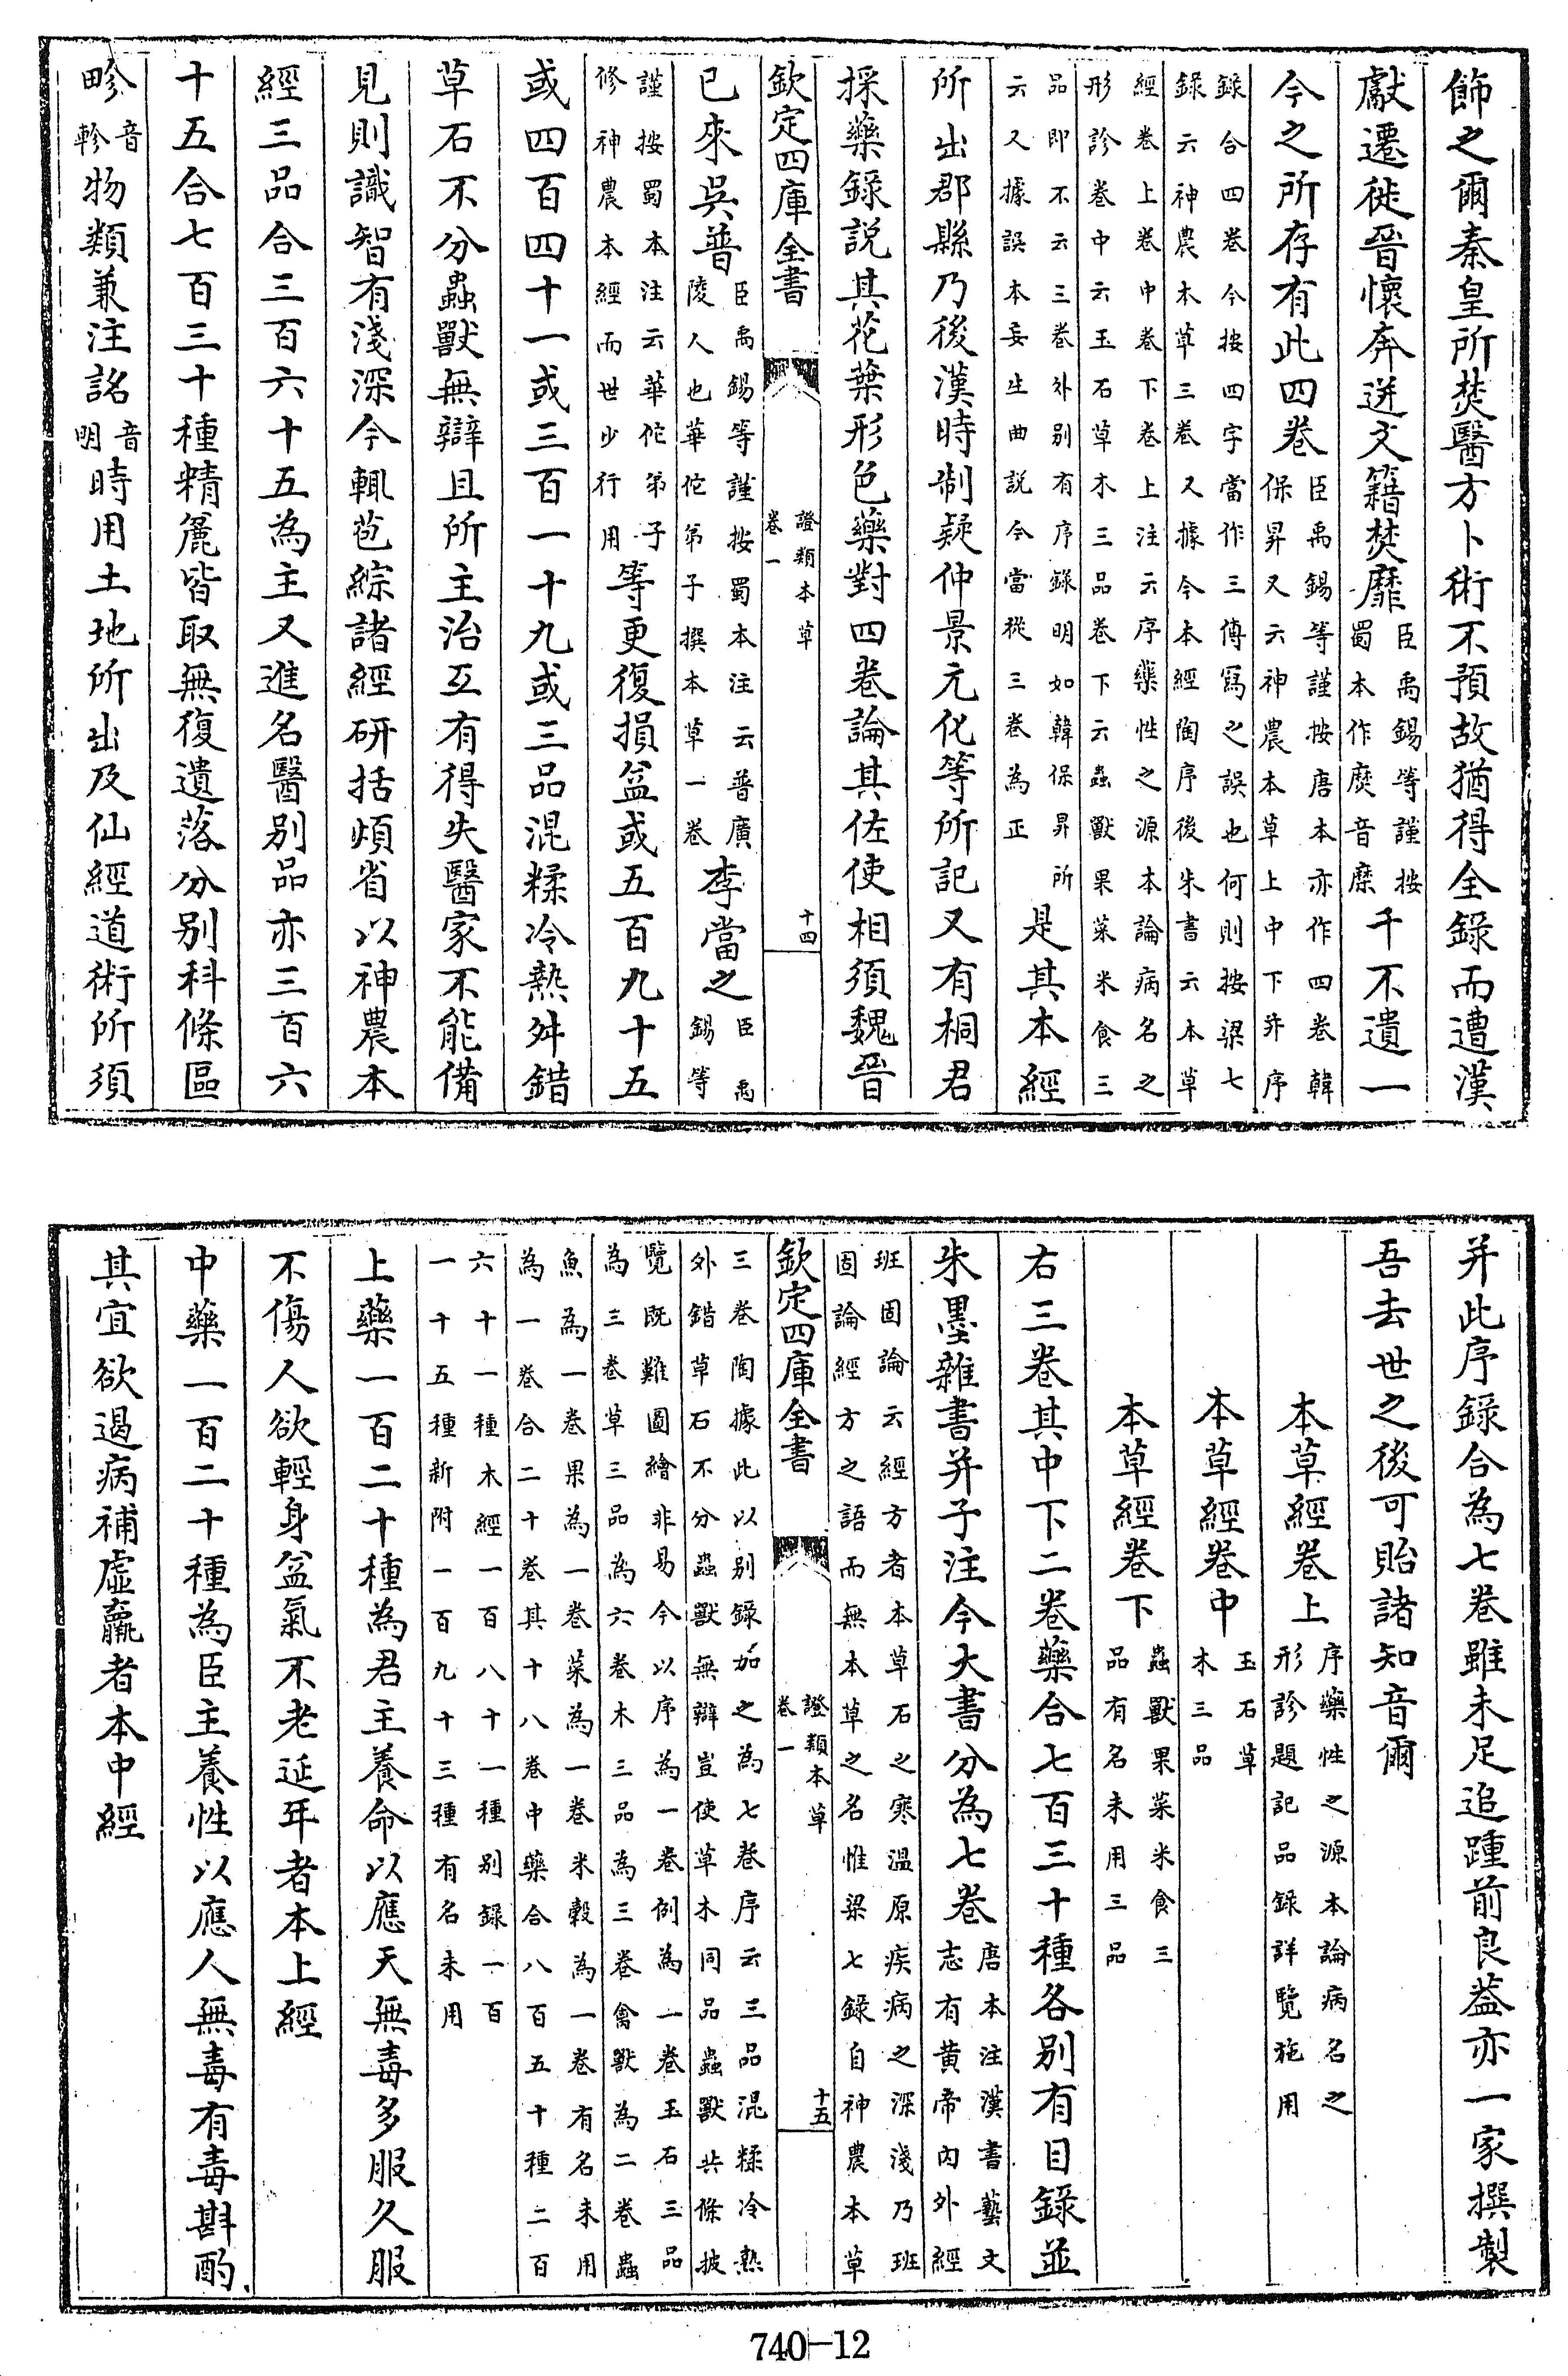 飾之爾秦皇所焚醫方卜術不預故猶得全錄而遭漢
獻遷徙晉懷奔迸文籍焚靡臣禹錫等謹按蜀本作㷄音糜千不遺一
今之所存有此四卷臣禹錫等謹按唐本亦作四卷韓保昇又云神農本草上中下并序
錄合四卷今按四字當作三傳寫之誤也何則按梁七錄云神農本草三卷又據今本經陶序後朱書云本草
經卷上卷中卷下卷上注云序藥性之源本論病名之形診卷中云玉石草木三品卷下云蟲獸果菜米食三
品即不云三卷外別有序錄明如韓保昇所云又據誤本妄生曲説今當從三卷為正是其本經
所出郡縣乃後漢時制疑仲景元化等所記又有桐君
採藥錄説其花葉形色藥對四卷論其佐使相須魏晉
欽定四庫全書 證類本草 卷一 十四
已來吳普臣禹錫等謹按蜀本注云普廣陵人也華佗弟子撰本草一卷李當之臣禹錫等
謹按蜀本注云華佗弟子修神農本經而世少行用等更復損益或五百九十五
或四百四十一或三百一十九或三品混糅冷熱舛錯
草石不分蟲獸無辯且所主治互有得失醫家不能備
見則識智有淺深今輒苞綜諸經研括煩省以神農本
經三品合三百六十五為主又進名醫別品亦三百六
十五合七百三十種精麄皆取無復遺落分別科條區
畛音軫物類兼注詺音明時用土地所出及仙經道術所須
并此序錄合為七卷雖未足追踵前良葢亦一家撰製
吾去世之後可貽諸知音爾
本草經卷上序藥性之源本論病名之形診題記品錄詳覽施用
本草經卷中玉石草木三品
本草經卷下蟲獸果菜米食三品有名未用三品
右三卷其中下二卷藥合七百三十種各別有目錄並
朱墨雜書并子注今大書分為七卷唐本注漢書藝文志有黄帝內外經
班固論云經方者本草石之寒溫原疾病之深淺乃班固論經方之語而無本草之名惟梁七錄自神農本草
三卷陶據此以別錄加之為七卷序云三品混糅冷熱外錯草石不分蟲獸無辯豈使草木同品蟲獸共條披
欽定四庫全書 證類本草 卷一 十五
覽既難圖繪非易今以序為一卷例為一卷玉石三品為三卷草三品為六卷木三品為三卷禽獸為二卷蟲
魚為一卷果為一卷菜為一卷米穀為一卷有名未用為一卷合二十卷其十八卷中藥合八百五十種二百
六十一種木經一百八十一種別錄一百一十五種新附一百九十三種有名未用
上藥一百二十種為君主養命以應天無毒多服久服
不傷人欲輕身益氣不老延年者本上經
中藥一百二十種為臣主養性以應人無毒有毒斟酌
其宜欲遏病補虛羸者本中經
740-12